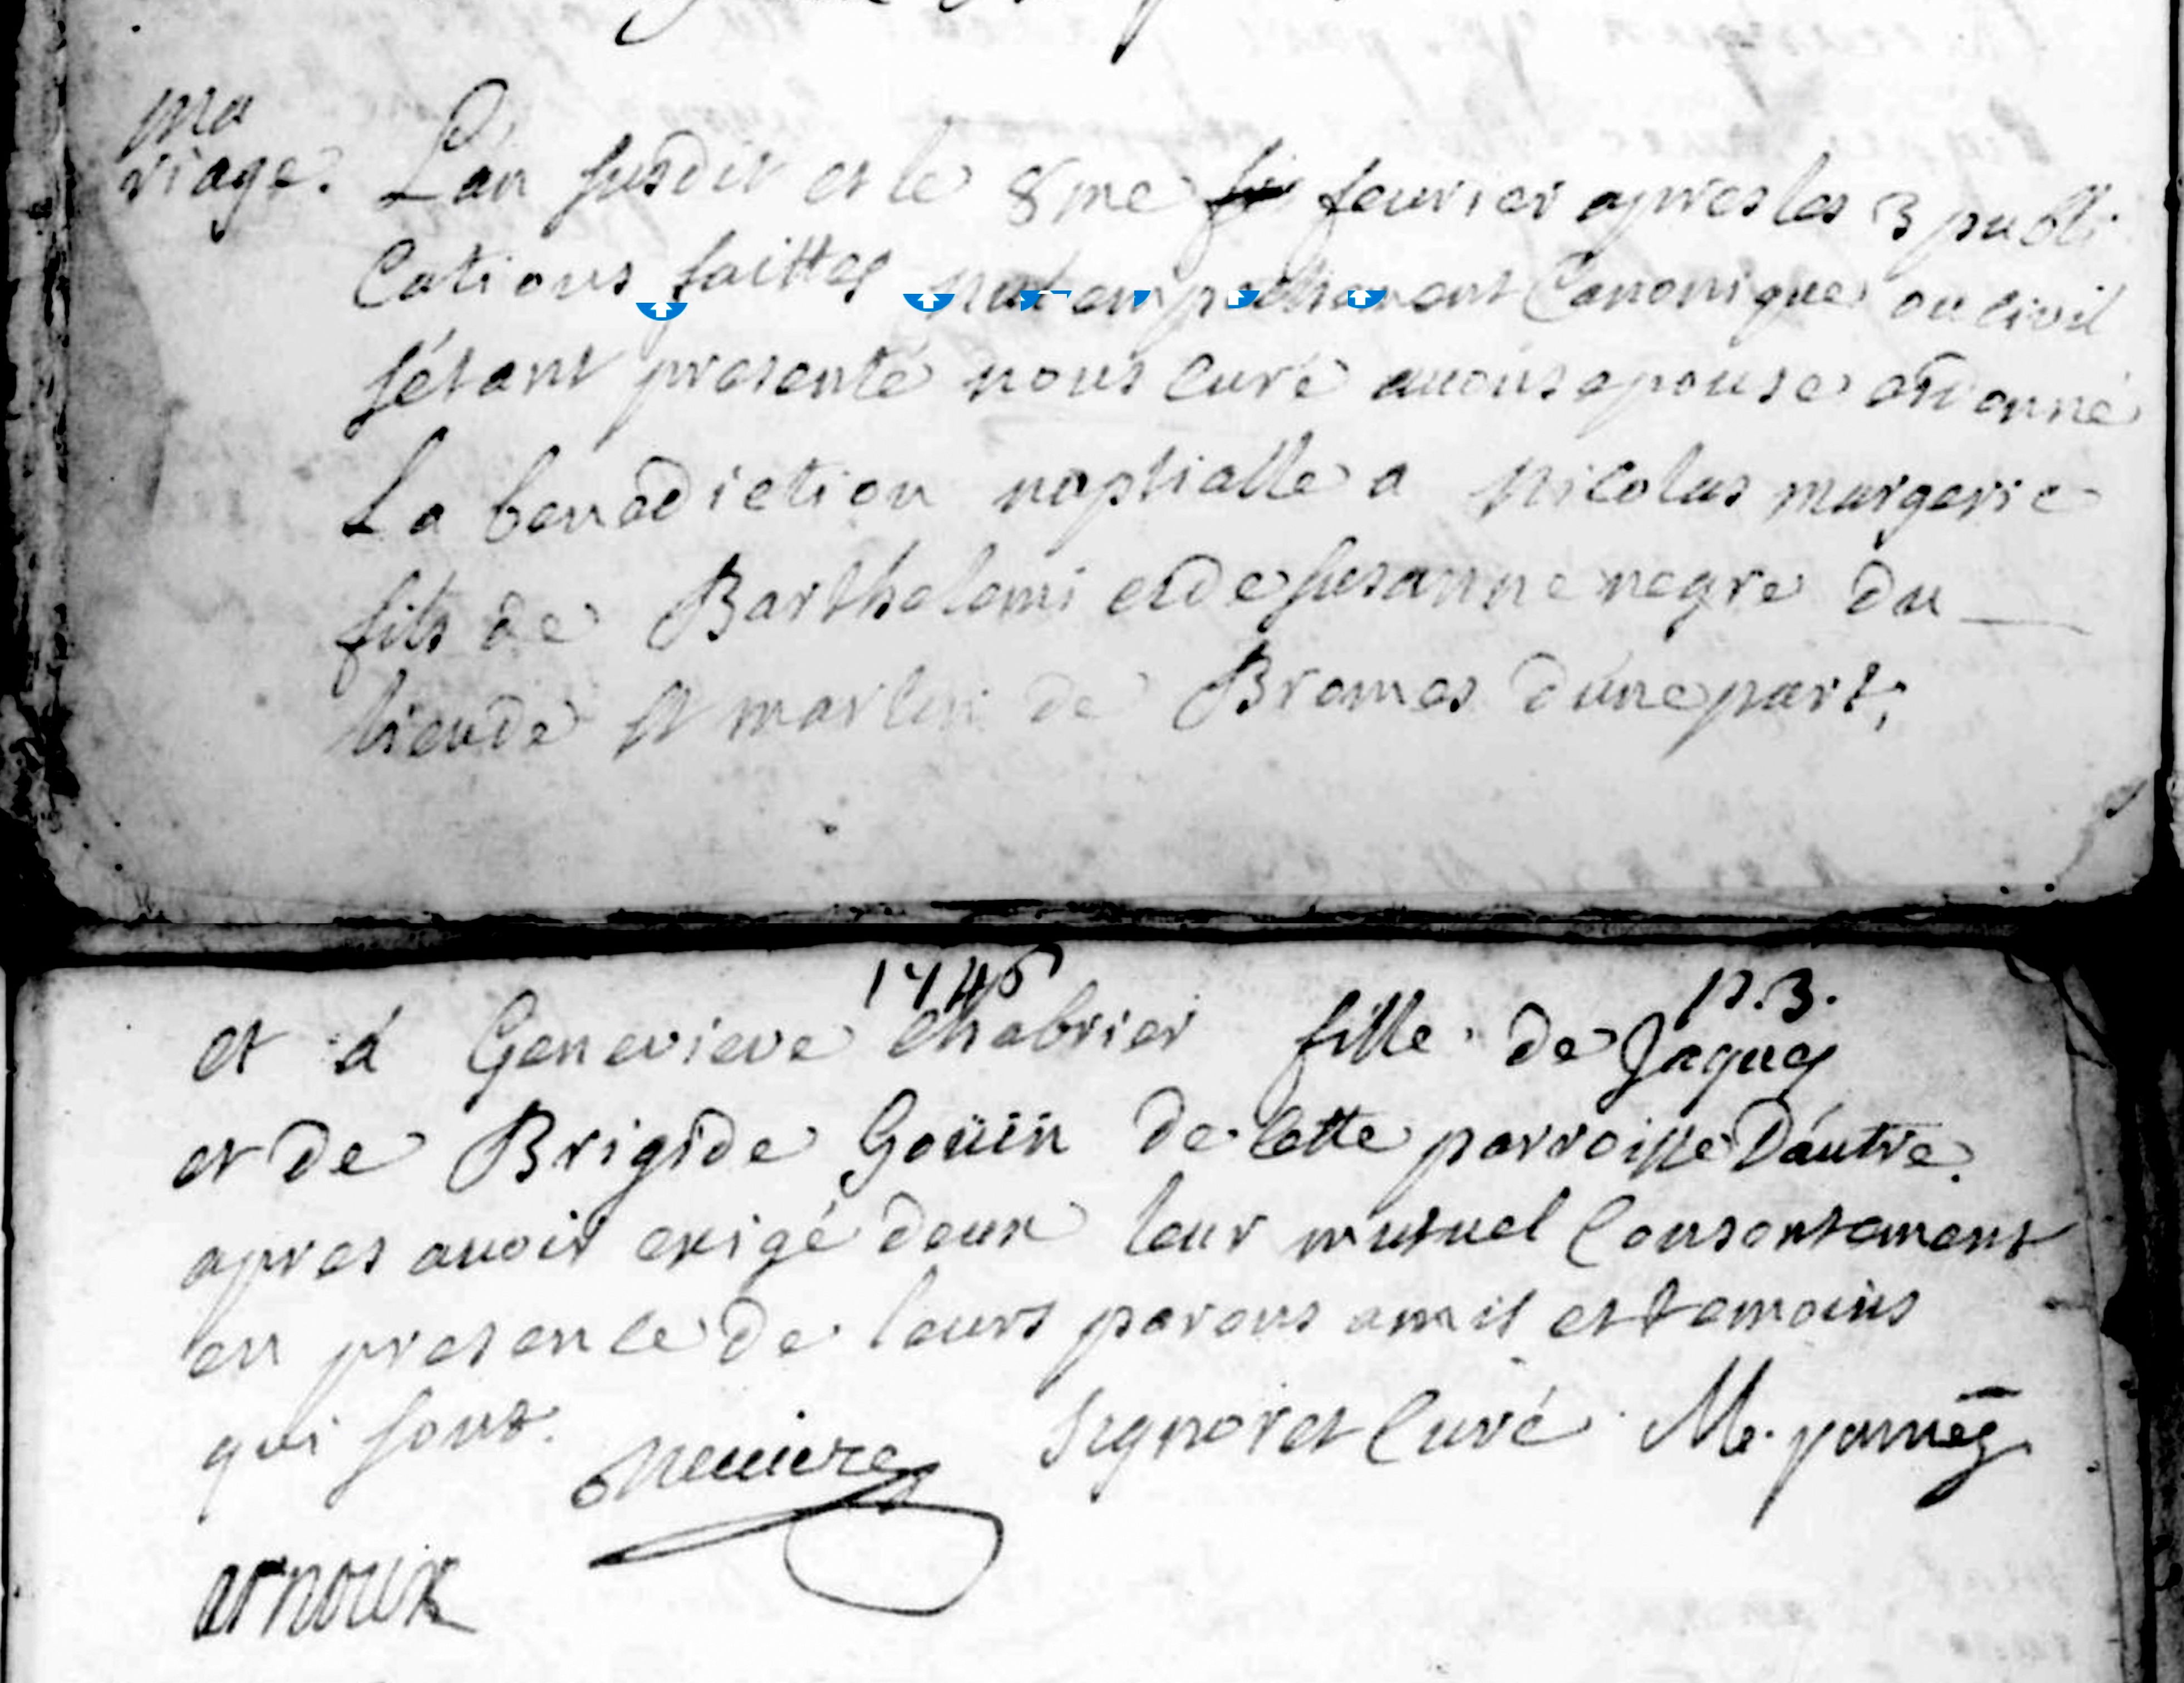 ma
riage.
Lan susdit et le 8me fevrier apres les 3 publi
cations faittes nul empechement Canonique ou civil
s'étant presenté nous curé avons epouse et donné
La benediction nuptialle a Nicolas margerie
fils de Barthelemi et de susanne negre du
lieu de st martin de Bromes d'une part;
1745 p. 3.
et á Genevieve Chabrier fille de Jaques
et de Brigide Goüin de cette parroisse D'autre.
apres avoir exigé deux leur mutuel Consentement
en presence de leurs parens amis et temoins
qui sont. Signoret Curé
arnoux